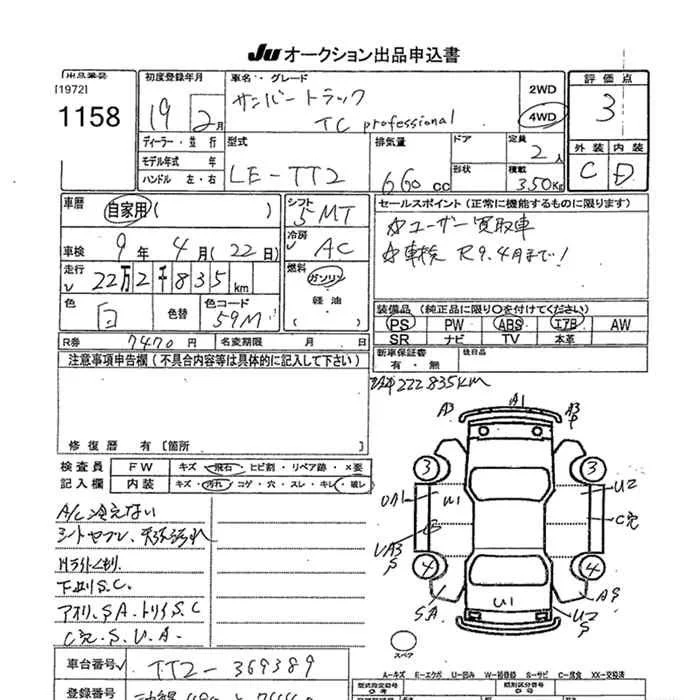 Ju オークション出品申込書
出品番号
[1972]
1158
初度登録年月
19 2月
車名・グレード
サンバートラック
TC professional
2WD
4WD
評価点
3
外装 内装
C D
ディーラー・並行
モデル年式 年
ハンドル 左・右
型式
LE-TT2
排気量
660 cc
ドア
形状
定員
2人
積載
350Kg
車歴
自家用 ( )
車検 9年 4月(22日)
走行
22万2千835km
色
白
色替
色コード
59M
シフト
5MT
冷房
AC
燃料
ガソリン
軽油
( )
セールスポイント(正常に機能するものに限ります)
☆ユーザー買取車
☆車検 R9.4月まで!
装備品(純正品に限り○を付けてください)
PS PW ABS エアB AW
SR ナビ TV 本革
新車保証書
有・無
後日品
R券 7470円 名変期限 月 日
注意事項申告欄(不具合内容等は具体的に記入して下さい)
修復歴 有[箇所 ]
222835KM
検査員
記入欄
FW キズ・飛石・ヒビ割・リペア跡・×要
内装 キズ・汚れ・コゲ・穴・スレ・キレ・破レ
A/C冷えない
Hライトくもり
下廻りS.C.
アオリ、S.A.トリイS.C
C穴、S、U、A.
A3 A1 A3
P
3 3
U1 U2
C穴
UA3
S
4 4
SA U1 U2
S
AS
スペア
A-キズ E-エクボ U-凹み W-補修跡 S-サビ C-腐食 XX-交換済
車台番号 TT2-369389
登録番号